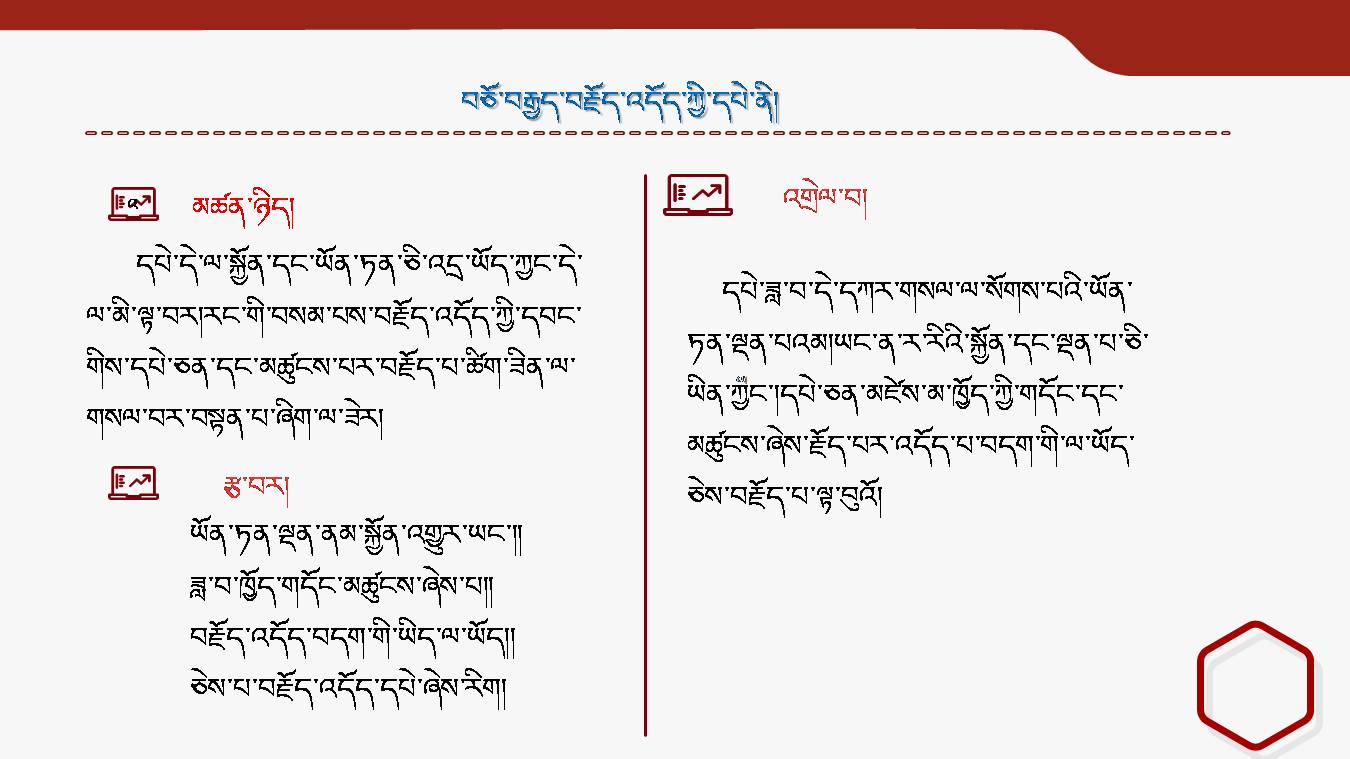 བཅོ་བརྒྱད་བརྗོད་འདོད་ཀྱི་དཔེ་ནི།
མཚན་ཉིད།
དཔེ་དེ་ལ་སྐྱོན་དང་ཡོན་ཏན་ཅི་འདྲ་ཡོད་ཀྱང་དེ་
ལ་མི་ལྟ་བར།རང་གི་བསམ་པས་བརྗོད་འདོད་ཀྱི་དབང་
གིས་དཔེ་ཅན་དང་མཚུངས་པར་བརྗོད་པ་ཚིག་ཟིན་ལ་
གསལ་བར་བསྟན་པ་ཞིག་ལ་ཟེར།
རྩ་བར།
ཡོན་ཏན་ལྡན་ནམ་སྐྱོན་འགྱུར་ཡང་༎
ཟླ་བ་ཁྱོད་གདོང་མཚུངས་ཞེས་པ༎
བརྗོད་འདོད་བདག་གི་ཡིད་ལ་ཡོད༎
ཅེས་པ་བརྗོད་འདོད་དཔེ་ཞེས་རིག།
འགྲེལ་བ།
དཔེ་ཟླ་བ་དེ་དཀར་གསལ་ལ་སོགས་པའི་ཡོན་
ཏན་ལྡན་པའམ།ཡང་ན་ར་རིའི་སྐྱོན་དང་ལྡན་པ་ཅི་
ཡིན་ཀྱང་།དཔེ་ཅན་མཛེས་མ་ཁྱོད་ཀྱི་གདོང་དང་
མཚུངས་ཞེས་རྗོད་པར་འདོད་པ་བདག་གི་ལ་ཡོད་
ཅེས་བརྗོད་པ་ལྟ་བུའོ།